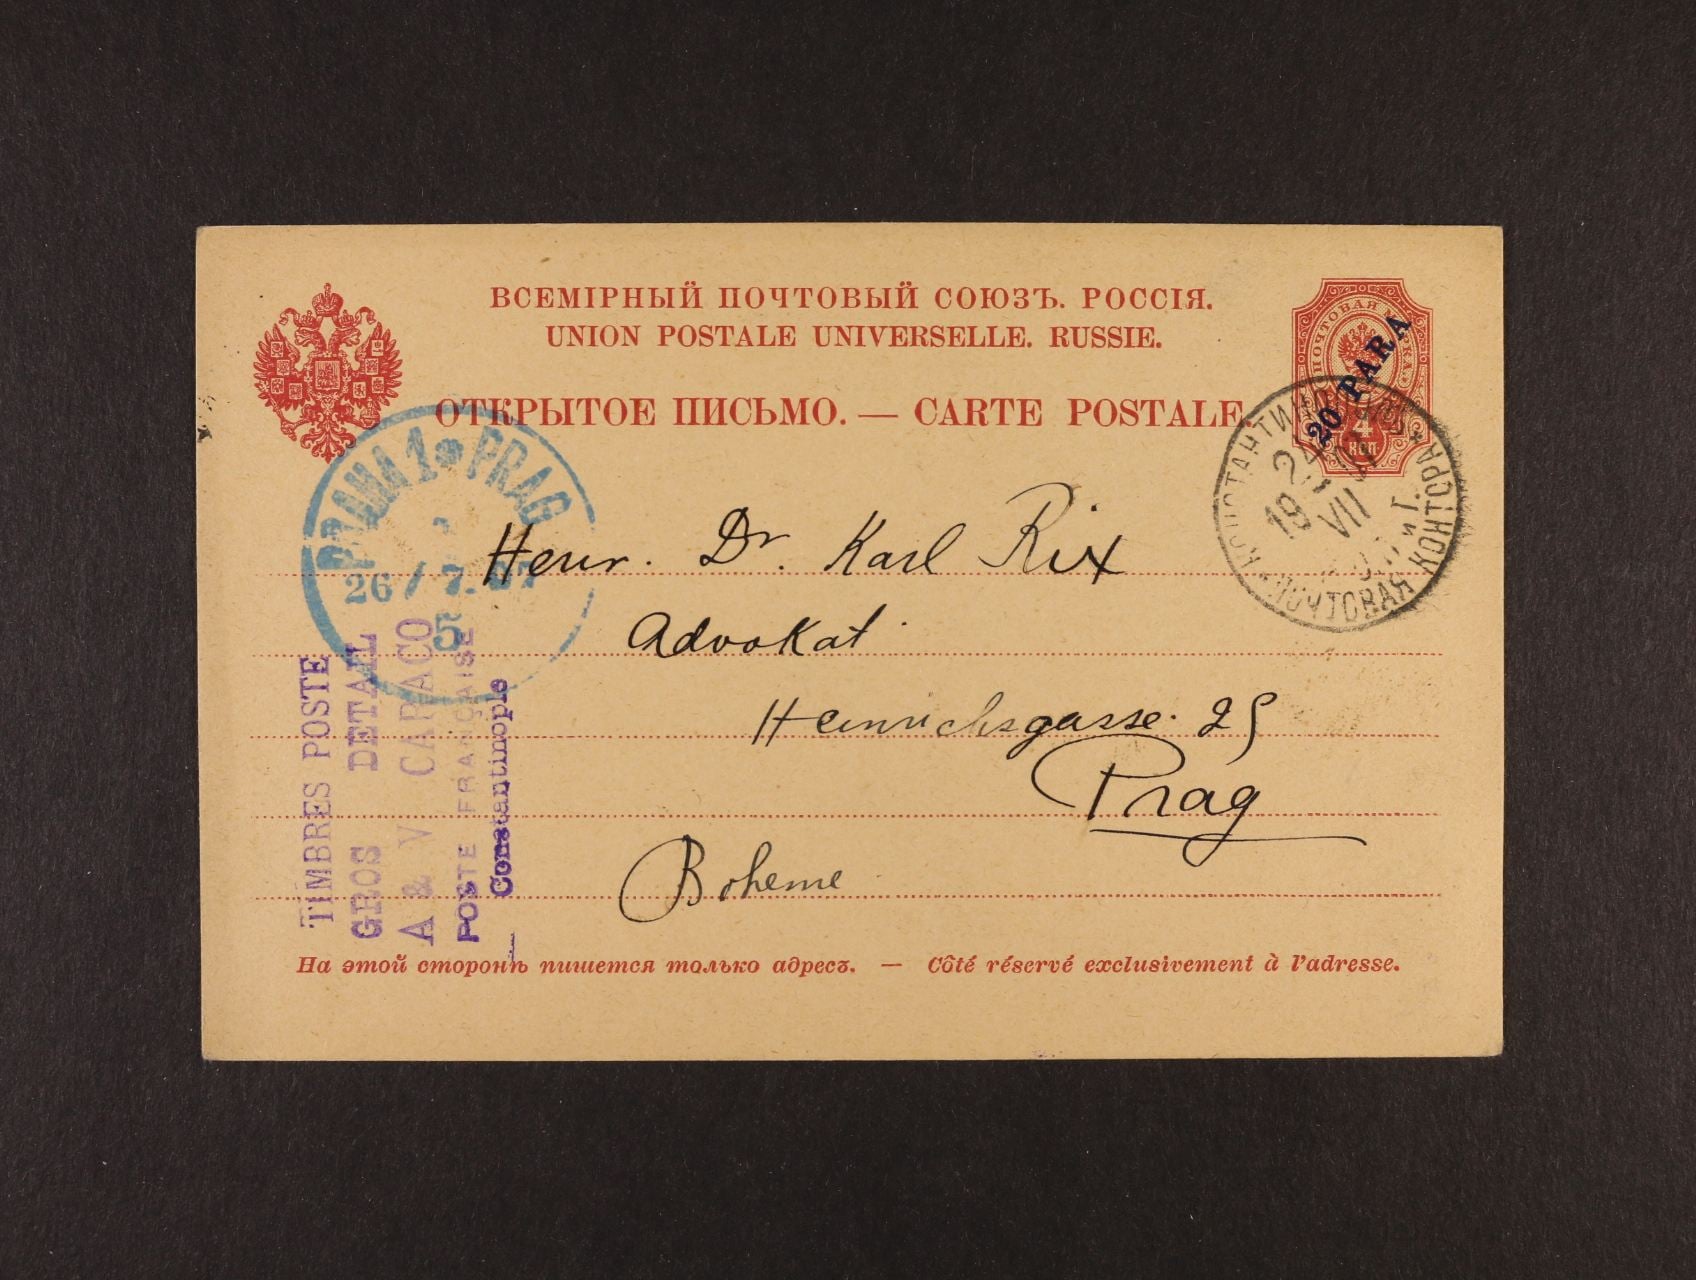 ВСЕМІРНЫЙ ПОЧТОВЫЙ СОЮЗЪ. РОССІЯ.
UNION POSTALE UNIVERSELLE. RUSSIE.
ОТКРЫТОЕ ПИСЬМО. — CARTE POSTALE.
ПОЧТОВАЯ МАРКА
4
КОП
20 PARA
ПОЧТОВАЯ КОНТОРА
24
VII
PRAHA 1 * PRAG
26/7.07
5
Herr. Dr. Karl Rix
Advokat
Heinrichsgasse. 25
Prag
Boheme
TIMBRES POSTE
GROS DETAIL
A & V CARACO
POSTE FRANÇAISE
Constantinople
На этой сторонѣ пишется только адресъ. — Côté réservé exclusivement à l'adresse.